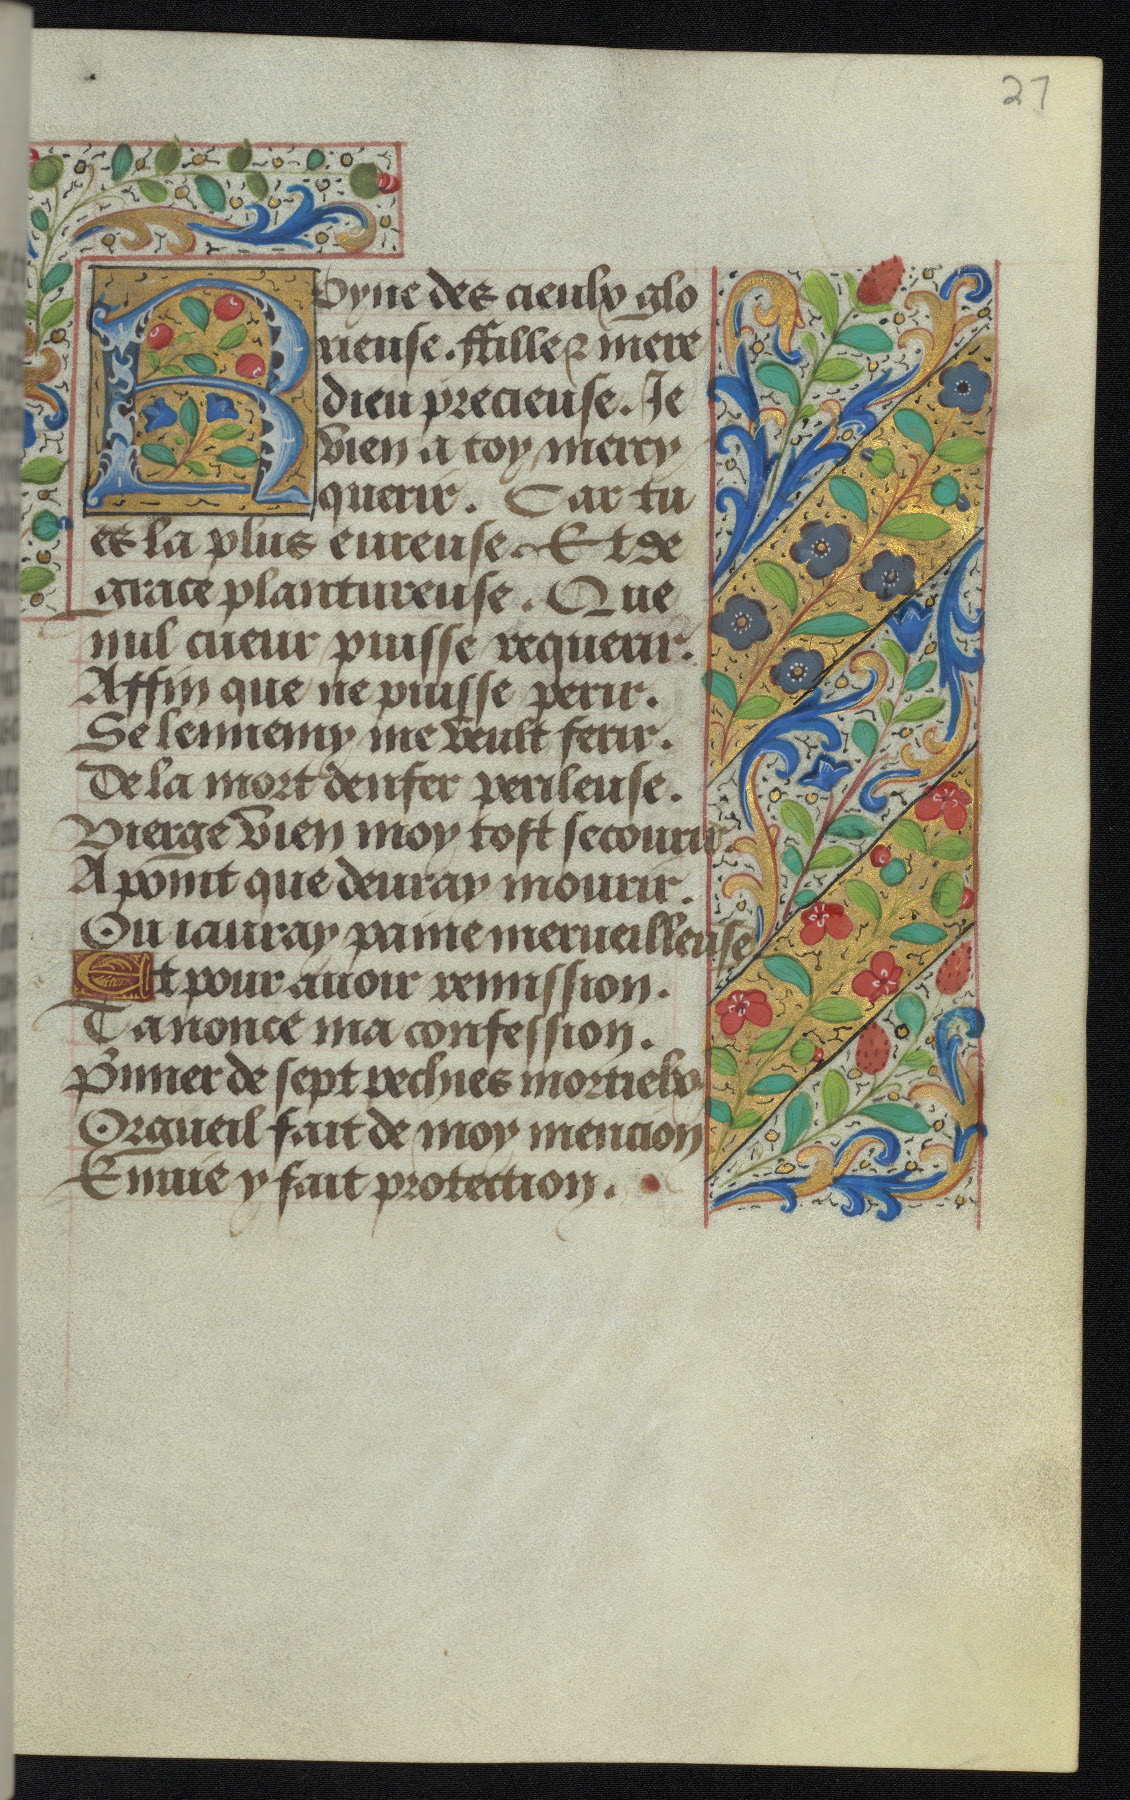 27
Royne des cieulx glo
rieuse. ffille ⁊ mere
dieu precieuse. Je
vien a toy mercy
querir. Car tu
es la plus eureuse. Et de
grace plantureuse. Que
nul cueur puisse requerir.
Affin que ne puisse perir.
Se lennemy me veult ferir.
De la mort denfer perileuse.
Vierge vien moy tost secourir.
A point que deuray mourir.
Ou iauray paine merueilleuse
Et pour auoir remission.
Tanonce ma confession.
Pmier de sept pechies mortielx
Orgueil fait de moy mencion
Enuie y fait protection.